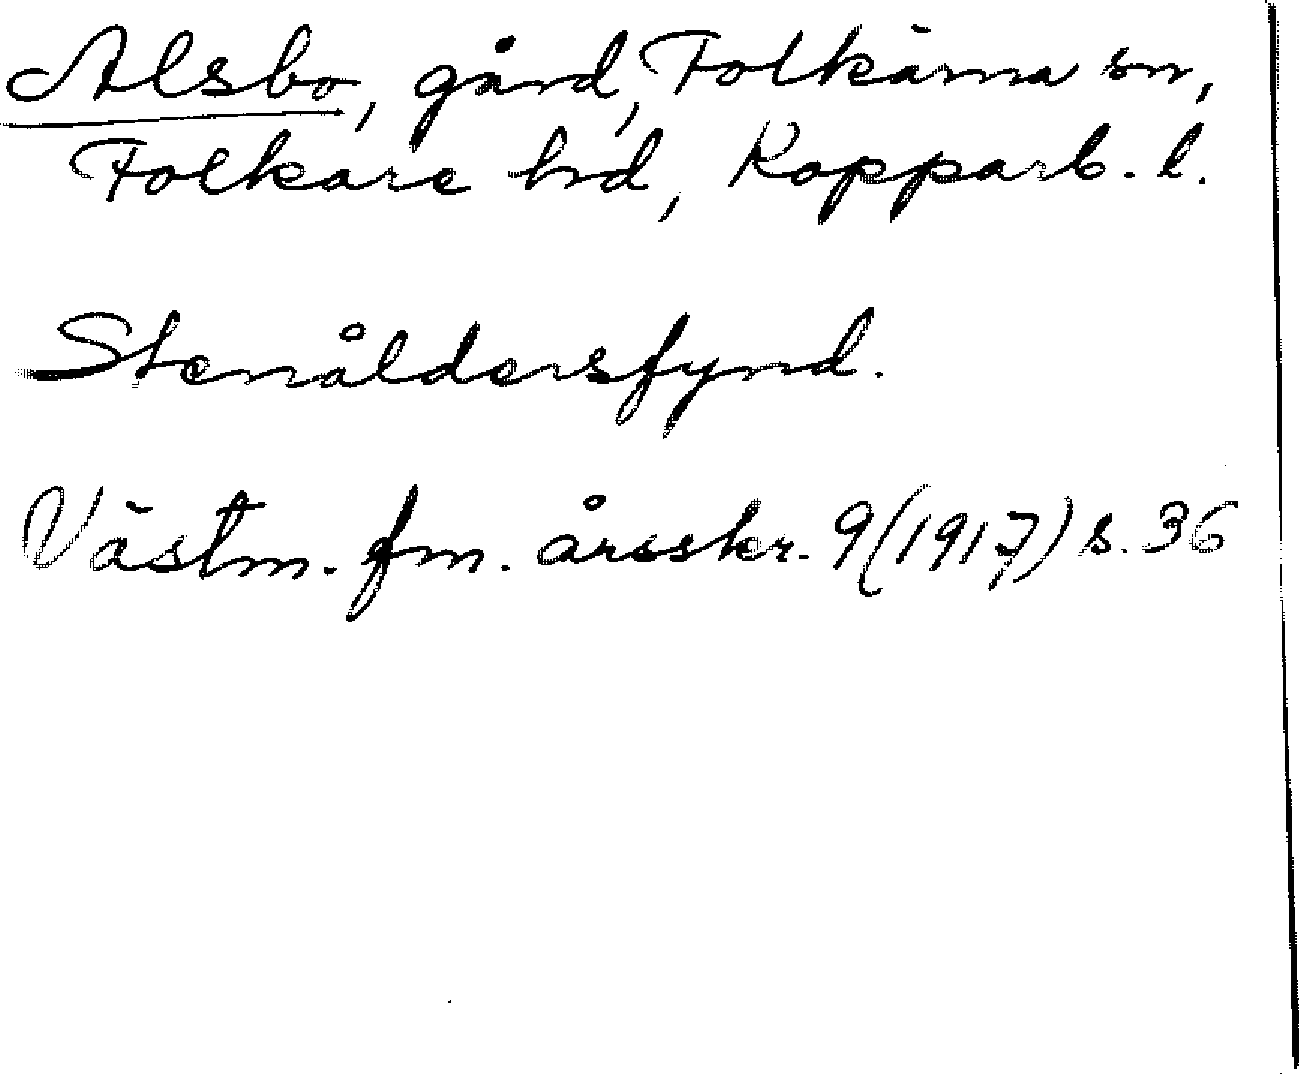 Alsbo, gård, Folkärna sn,
Folkare hd, Kopparb. l.
Stenåldersfynd.
Västm. fm. årsskr. 9 (1917) s. 36